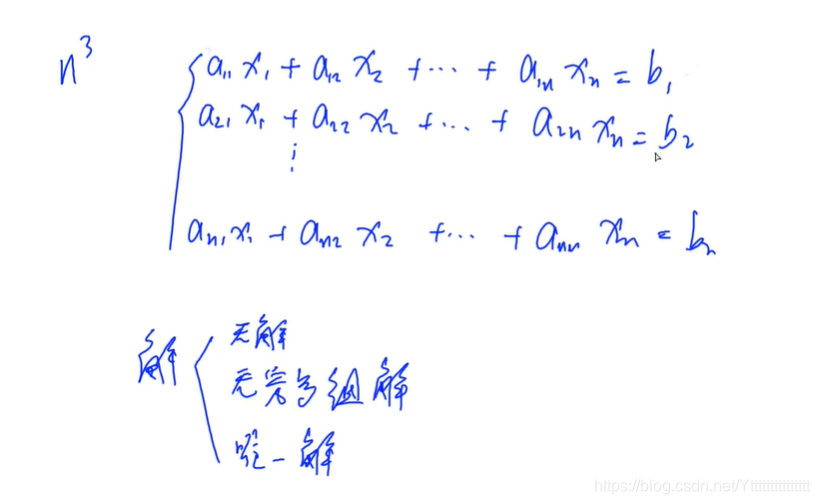 n³
a₁₁x₁ + a₁₂x₂ + ··· + a₁ₙxₙ = b₁
a₂₁x₁ + a₂₂x₂ + ··· + a₂ₙxₙ = b₂
⋮
aₙ₁x₁ + aₙ₂x₂ + ··· + aₙₙxₙ = bₙ
解
无解
无穷多组解
唯一解
https://blog.csdn.net/Yttttttttttttttt